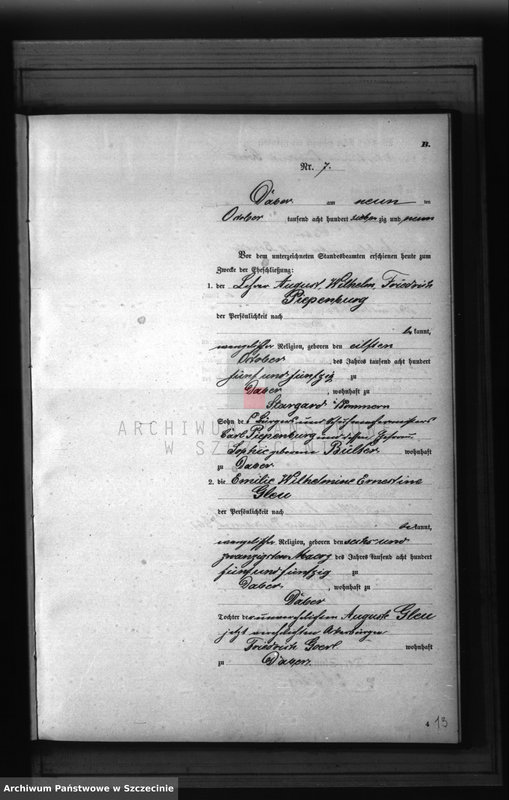 B.
Nr. 7.
Daber am neun ten
October tausend acht hundert sieben zig und neun
Vor dem unterzeichneten Standesbeamten erschienen heute zum
Zwecke der Eheschließung:
1. der Lehrer August Wilhelm Friedrich
Piepenburg
der Persönlichkeit nach
be kannt,
evangelischer Religion, geboren den eilften
October des Jahres tausend acht hundert
fünf und fünfzig zu
Daber, wohnhaft zu
Stargard i Pommern
Sohn des Bürgers und Schuhmachermeisters
Carl Piepenburg und dessen Ehefrau
Sophie geborene wohnhaft
zu Daber
2. die Emilie Wilhelmine Ernestine
Gleu
der Persönlichkeit nach
be kannt,
evangelischer Religion, geboren den sechs und
zwanzigsten März des Jahres tausend acht hundert
fünf und fünfzig zu
Daber, wohnhaft zu
Daber
Tochter der unverehelichten August Gleu
jetzt verehelichten Ackerbürger
Friedrich wohnhaft
zu Daber
4 13
ARCHIWUM PAŃSTWOWE
W SZCZECINIE
Archiwum Państwowe w Szczecinie